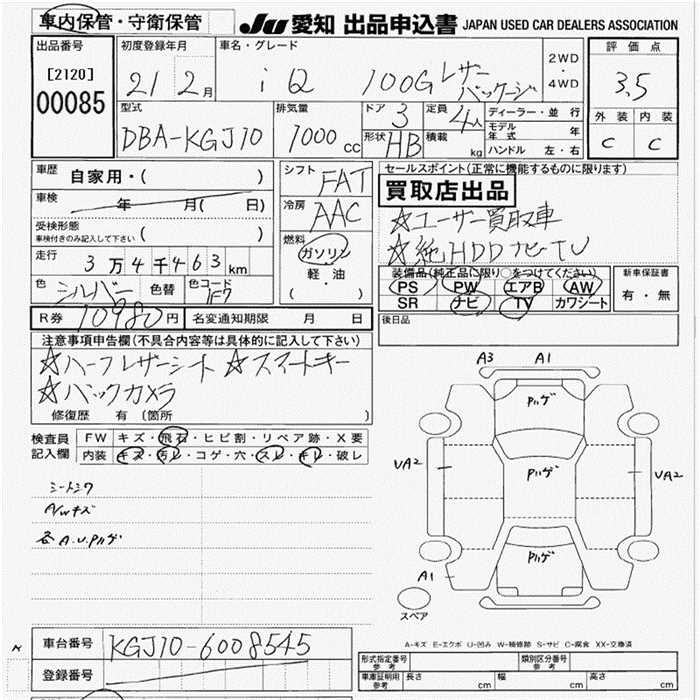 車内保管・守衛保管
JU 愛知 出品申込書 JAPAN USED CAR DEALERS ASSOCIATION
出品番号
[2120]
00085
初度登録年月
21 2月
車名・グレード
iQ 100G レザーパッケージ
2WD
・
4WD
評価点
3.5
外装 内装
C C
型式
DBA-KGJ10
排気量
1000 cc
ドア
3
形状 HB
定員
4人
積載 kg
ディーラー・並行
モデル年式 年
ハンドル 左・右
車歴 自家用・( )
車検 年 月( 日)
受検形態
車検付きのみ記入して下さい ( )
走行 3万4千463km
色 シルバー 色替 色コード 1F7
シフト FAT
冷房 AAC
燃料
ガソリン
軽・油
( )
セールスポイント(正常に機能するものに限ります)
買取店出品
☆ユーザー買取車
☆純HDDナビTV
装備品(純正品に限り○をつけてください)
PS PW エアB AW
SR ナビ TV カワシート
新車保証書
有・無
R券 10980円 名変通知期限 月 日
後日品
注意事項申告欄(不具合内容等は具体的に記入して下さい)
☆ハーフレザーシート ☆スマートキー
☆バックカメラ
修復歴 有(箇所 )
検査員記入欄
FW キズ・飛石・ヒビ割・リペア跡・X要
内装 キズ・汚レ・コゲ・穴・スレ・キレ・破レ
シートシワ
A/Wキズ
各A.U.Pハゲ
A3 A1
Pハゲ
UA2 Pハゲ UA2
Pハゲ
A1
スペア
A-キズ E-エクボ U-凹み W-補修跡 S-サビ C-腐食 XX-交換済
車台番号 KGJ10-6008545
登録番号
形式指定番号 参考
類別区分番号 参考
車庫証明用 参考 長さ cm 幅 cm 高さ cm